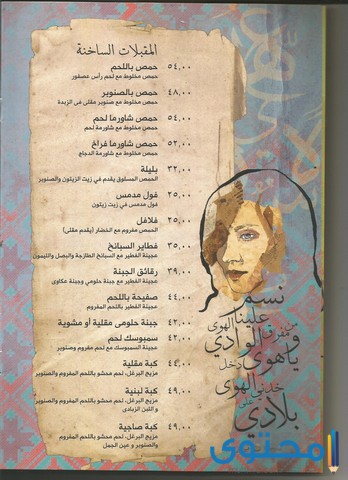 المقبلات الساخنة
حمص باللحم ٥٤,٠٠
حمص مخلوط مع لحم رأس عصفور
حمص بالصنوبر ٤٨,٠٠
حمص مخلوط مع صنوبر مقلى فى الزبدة
حمص شاورما لحم ٥٤,٠٠
حمص مخلوط مع شاورمة لحم
حمص شاورما فراخ ٥٢,٠٠
حمص مخلوط مع شاورمة الدجاج
بليلة ٣٢,٠٠
الحمص المسلوق يقدم في زيت الزيتون والصنوبر
فول مدمس ٢٥,٠٠
فول مدمس في زيت زيتون
فلافل ٢٥,٠٠
الحمص مفروم مع الخضار (يقدم مقلى)
فطاير السبانخ ٣٥,٠٠
عجينة الفطير مع السبانخ الطازجة والبصل والليمون
رقائق الجبنة ٣٩,٠٠
عجينة الفطير مع جبنة حلومي وجبنة عكاوى
صفيحة باللحم ٤٤,٠٠
عجينة الفطير باللحم المفروم
جبنة حلومى مقلية أو مشوية ٤٢,٠٠
سمبوسك لحم ٤٢,٠٠
عجينة السمبوسك مع لحم مفروم وصنوبر
كبة مقلية ٤٤,٠٠
مزيج البرغل، لحم محشو باللحم المفروم والصنوبر
كبة لبنية ٤٩,٠٠
مزيج البرغل، لحم محشو باللحم المفروم والصنوبر
و اللبن الزبادى
كبة صاجية ٤٩,٠٠
مزيج البرغل، لحم محشو باللحم المفروم
والصنوبر و عين الجمل
نسم
علينا الهوى
من مفرق الوادي
يا هوى دخل
الهوى خدني
على بلادي
محتوى